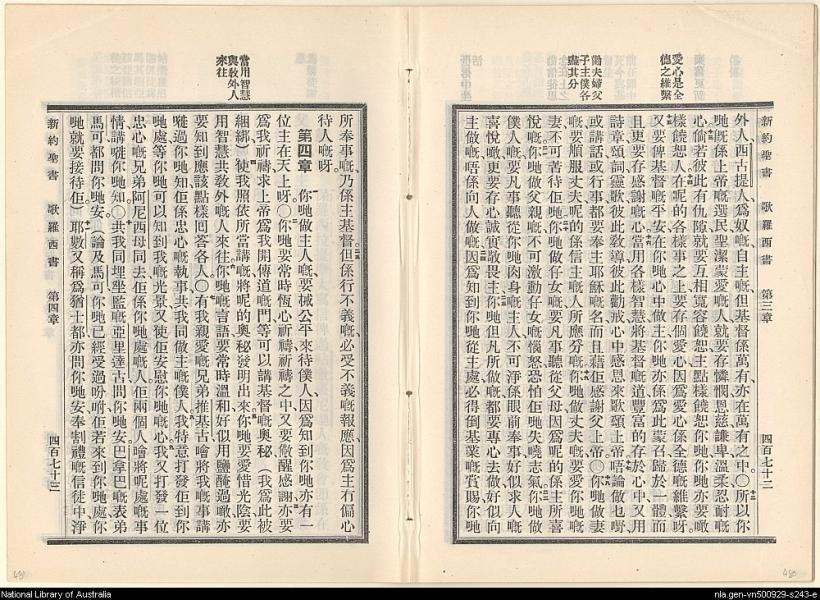 愛心是全
德之維繫
論夫婦父
子主僕各
盡其分
新約聖書 歌羅西書 第三章 四百七十二
外人西古提人爲奴嘅自主嘅但基督係萬有亦在萬有之中○所以你
哋既係上帝嘅選民聖潔蒙愛嘅人就要存憐憫恩慈謙卑温柔忍耐嘅
心倘若彼此有仇隙就要互相寬容饒恕主點樣饒恕你哋你哋亦要噉
樣饒恕人在呢的各樣事之上要存個愛心因爲愛心係全德嘅維繫呀
又要俾基督嘅平安在你哋心中做主你哋亦係爲此蒙召歸於一體而
且更要存感謝嘅心當用各樣智慧將基督嘅道豐富的存於心中又用
詩章頌詞靈歌彼此教導彼此勸戒心中感恩來歌頌上帝唔論做乜嘢
或講話或行事都要奉主耶穌嘅名而且藉佢感謝父上帝○你哋做妻
嘅要順服丈夫呢的係信主嘅人所應分嘅你哋做丈夫嘅要愛你哋嘅
妻不可苦待佢哋你哋做仔女嘅要凡事聽從父母因爲呢的係主所喜
悅嘅你哋做父親嘅不可激動仔女嘅惱怒恐怕佢哋失曉志氣你哋做
僕人嘅要凡事聽從你哋肉身嘅主人不可淨係眼前奉事好似求人嘅
喜悅噉更要存心誠實敬畏主你哋但凡所做嘅都要專心去做好似向
主做嘅唔係向人做嘅因爲知到你哋從主處必得倒基業嘅賞賜你哋
當用智慧
與教外人
來往
所奉事嘅乃係主基督但係行不義嘅必受不義嘅報應因爲主冇偏心
待人嘅呀
第四章 你哋做主人嘅要械公平來待僕人因爲知到你哋亦有一
位主在天上呀○你哋要常時恆心祈禱祈禱之中又要儆醒感謝亦要
爲我祈禱求上帝爲我開傳道嘅門等可以講基督嘅奧秘（我爲此被
綑綁）使我照依所當講嘅將呢的奧秘發明出來你哋要愛惜光陰要
用智慧共教外嘅人來往你哋嘅言語要常時温和好似用鹽醃過噉亦
要知到應該點樣回答各人○有我親愛嘅兄弟推基古噲將我嘅事講
嗮過你哋知佢係忠心嘅執事共我同做主嘅僕人我特意打發佢到你
哋處等你哋可以知到我哋光景又使佢安慰你哋嘅心我又打發一位
忠心嘅兄弟阿尼西母同去佢係你哋處嘅人佢兩個人噲將呢處嘅事
情講嗮你哋知○共我同埋坐監嘅亞里達古問你哋安巴拿巴嘅表弟
馬可都問你哋安（論及馬可你哋已經受過吩咐佢若來到你哋處你
哋就要接待佢）耶數又稱爲猶士都亦問你哋安奉割禮嘅信徒中淨
新約聖書 歌羅西書 第四章 四百七十三
480
National Library of Australia
nla.gen-vn500929-s243-e